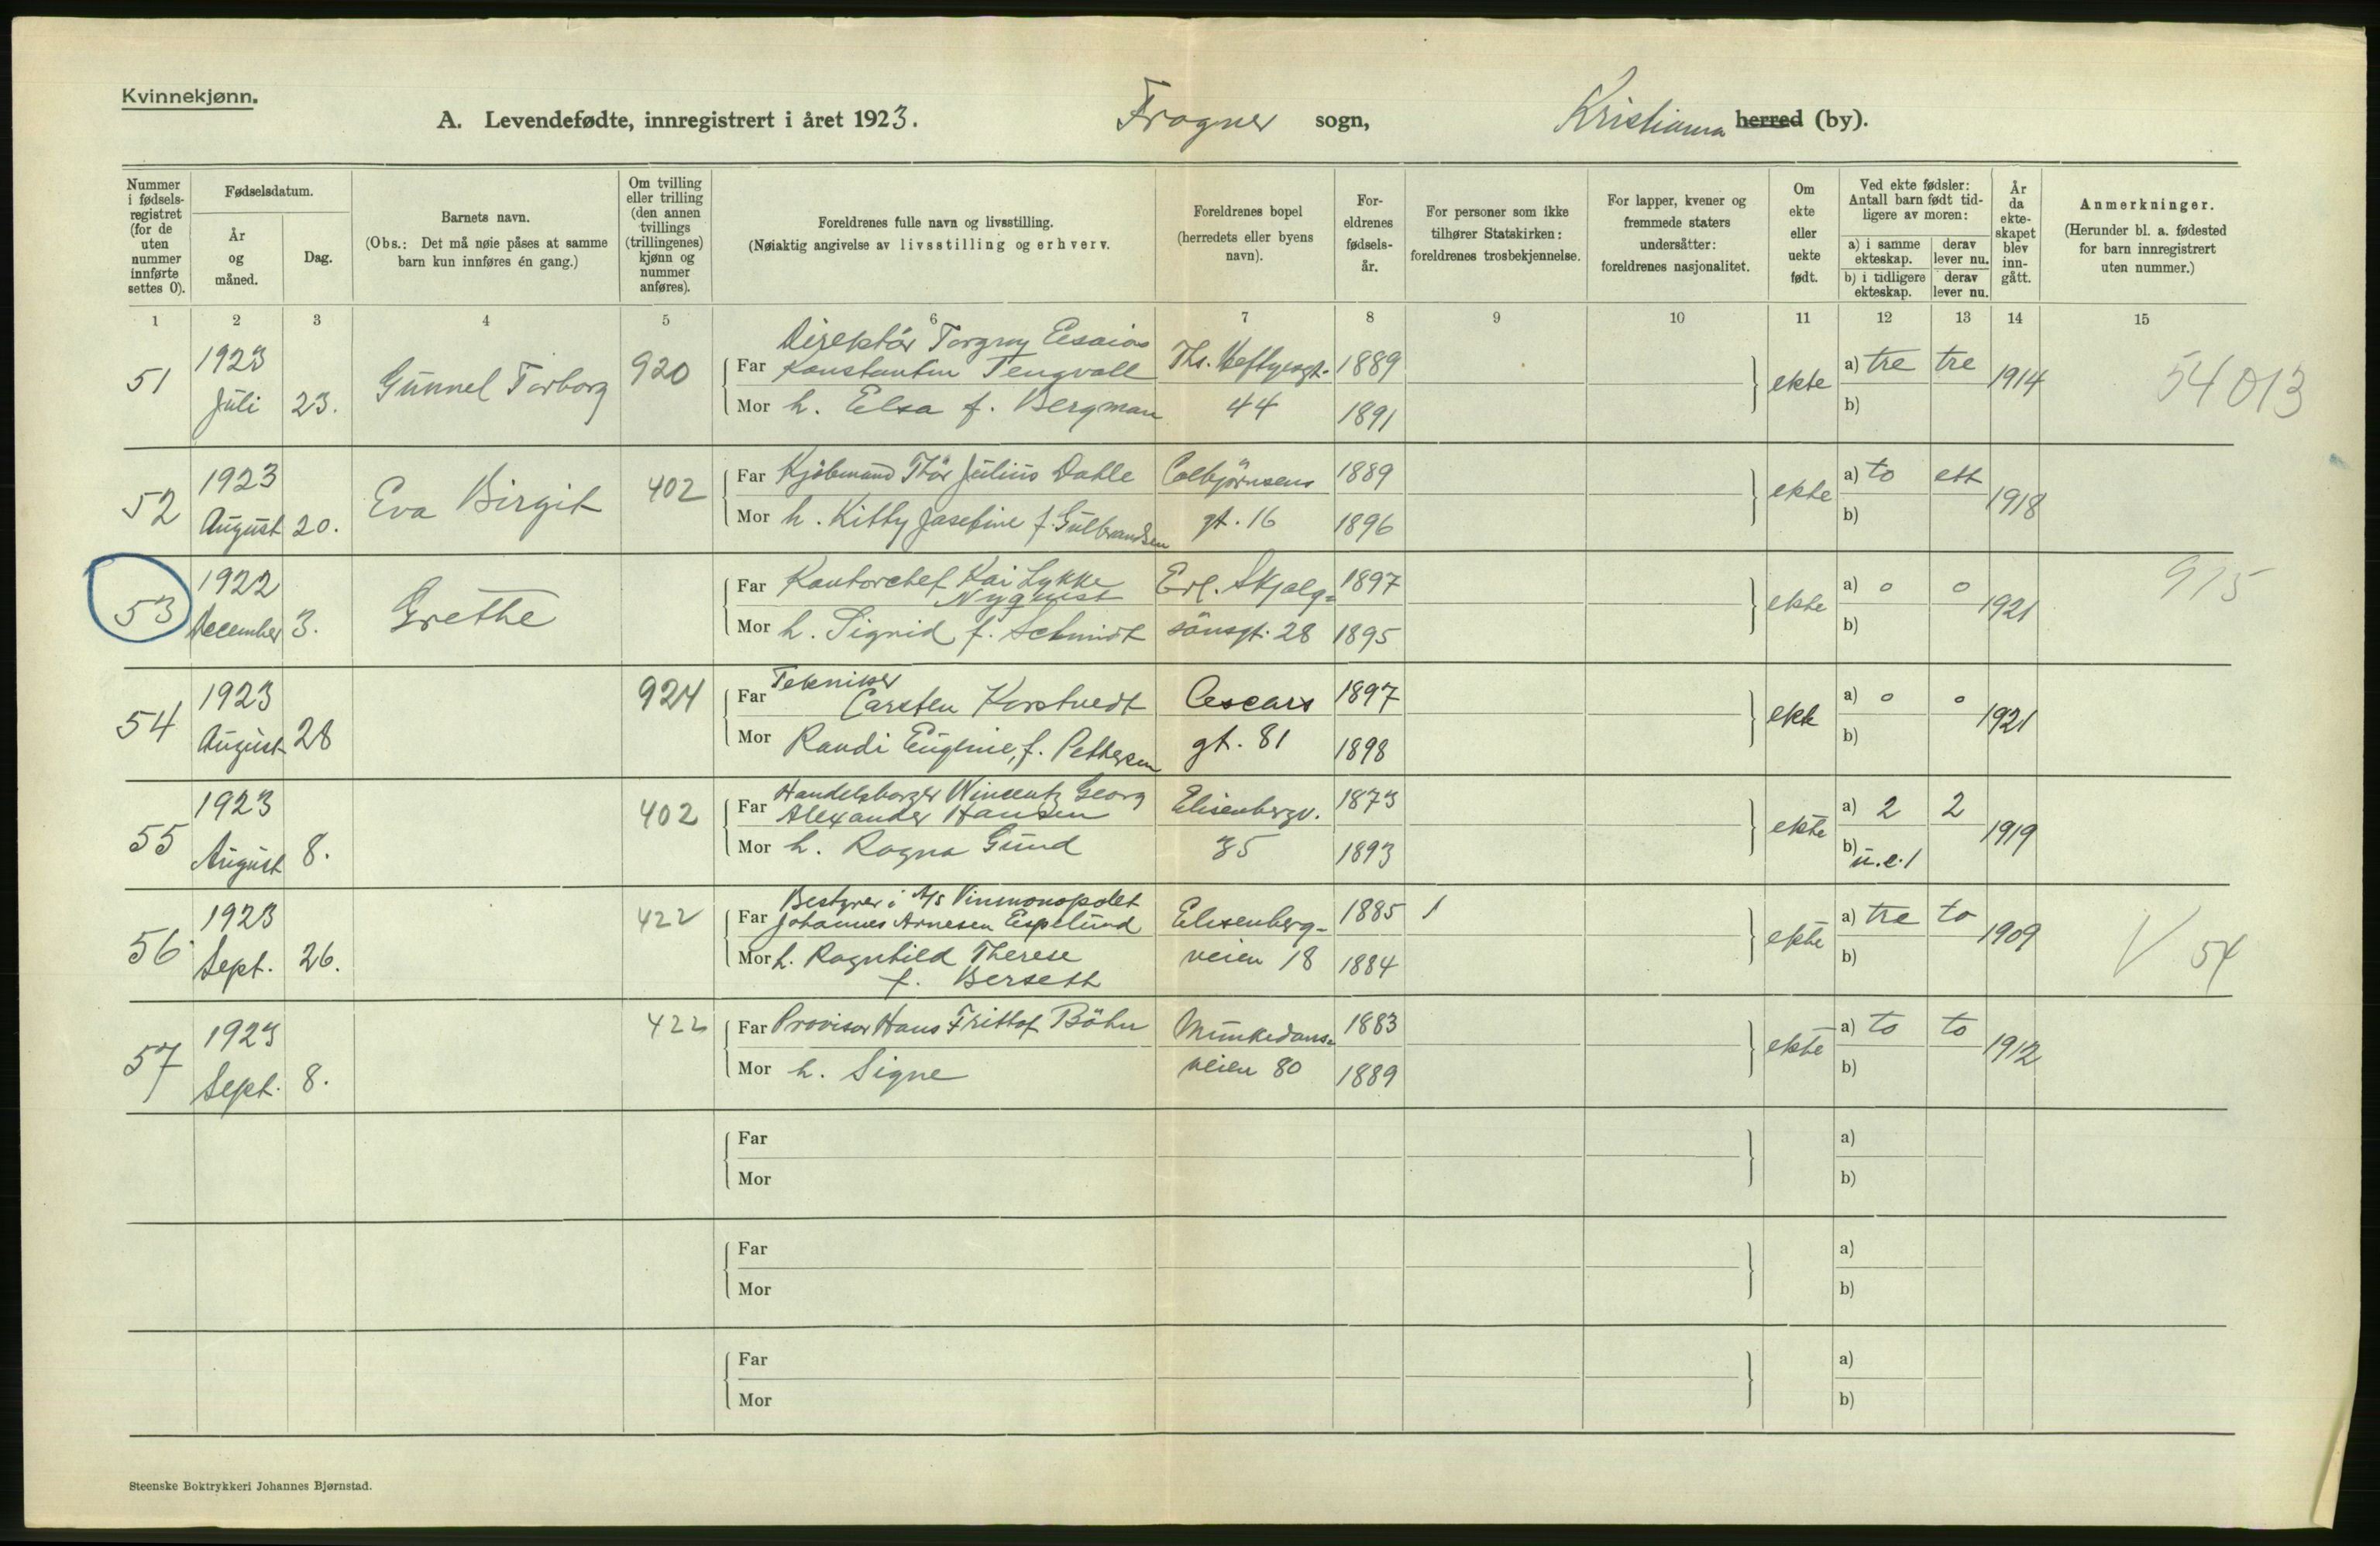 Kvinnekjønn.
A. Levendefødte, innregistrert i året 1923. Frogner sogn, Kristiania herred (by).
Nummer i fødsels-registret (for de uten nummer innførte settes 0).
Fødselsdatum.
År og måned.
Dag.
Barnets navn.
(Obs.: Det må nøie påses at samme barn kun innføres én gang.)
Om tvilling eller trilling (den annen tvillings (trillingenes) kjønn og nummer anføres).
Foreldrenes fulle navn og livsstilling.
(Nøiaktig angivelse av livsstilling og erhverv.
Foreldrenes bopel (herredets eller byens navn).
For-eldrenes fødsels-år.
For personer som ikke tilhører Statskirken: foreldrenes trosbekjennelse.
For lapper, kvener og fremmede staters undersåtter: foreldrenes nasjonalitet.
Om ekte eller uekte født.
Ved ekte fødsler: Antall barn født tid-ligere av moren:
a) i samme ekteskap. derav lever nu.
b) i tidligere ekteskap. derav lever nu.
År da ekte-skapet blev inn-gått.
Anmerkninger.
(Herunder bl. a. fødested for barn innregistrert uten nummer.)
1 2 3 4 5 6 7 8 9 10 11 12 13 14 15
51 1923 Juli 23. Gunnel Torborg 920
Direktør Torgny Esaias
Far Konstantin Tengvall Ths. Heftyesgt. 1889
Mor h. Elsa f. Bergman 44 1891
ekte a) tre tre 1914 54013
b)
52 1923 August 20. Eva Birgit 402
Far Kjøbmand Thor Julius Dahle Colbjörnsens 1889
Mor h. Kitty Josefine f. Gulbrandsen gt. 16 1896
ekte a) to ett 1918
b)
53 1922 December 3. Grethe
Far Kontorchef Kai Lykke
Nyquist Erl. Skjalg- 1897
Mor h. Sigrid f. Schmidt sönsgt. 28 1895
ekte a) 0 0 1921 915
b)
54 1923 August 28 924
Tekniker
Far Carsten Korstvedt Oscars 1897
Mor Randi Eugenie, f. Pettersen gt. 81 1898
ekte a) 0 0 1921
b)
55 1923 August 8. 402
Handelsborger Wincentz Georg
Far Alexander Hansen Elisenbergv. 1873
Mor h. Ragna Gund 35 1893
ekte a) 2 2 1919
b) u.e.1
56 1923 Sept. 26. 422
Bestyrer i A/s Vinmonopolet
Far Johannes Arnesen Espelund Elisenberg- 1885 1
Mor h. Ragnhild Therese veien 18 1884
f. Berseth
ekte a) tre to 1909 V 54
b)
57 1923 Sept. 8. 422
Far Provisor Hans Frithof Böhn Munkedams- 1883
Mor h. Signe veien 80 1889
ekte a) to to 1912
b)
Far a)
Mor b)
Far a)
Mor b)
Far a)
Mor b)
Steenske Boktrykkeri Johannes Bjørnstad.